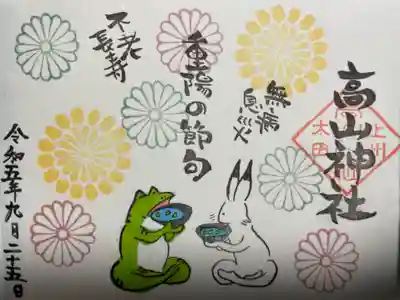 高山神社
上州
太田
無病
息災
重陽の節句
不老
長寿
令和五年九月二十五日